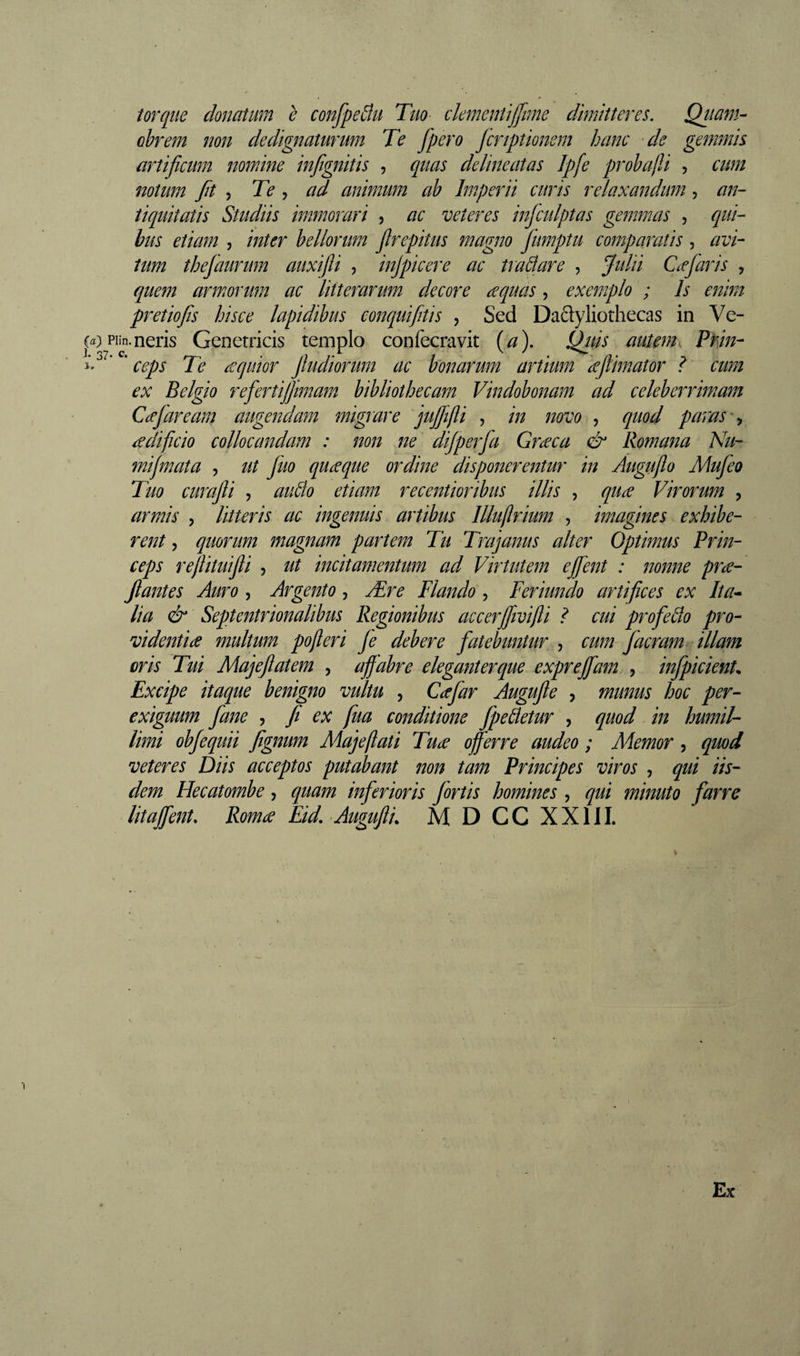 torque donatum è conſpectu Tuo clementiſſime dimitteres. Quam-
obrem non dedignaturum Te ſpero ſcriptionem hanc de gemmis
artificum nomine inſignitis , quas delineatas Ipſe probaſti , cum
notum ſit , Te , ad animum ab Imperii curis relaxandum , an-
tiquitatis Studiis immorari , ac veteres inſculptas gemmas , qui-
bus etiam , inter bellorum ſtrepitus magno ſumptu comparatis , avi-
tum theſaurum auxiſti , inſpicere ac tractare , Julii Cæſaris ,
quem armorum ac litterarum decore æquas , exemplo ; Is enim
pretioſis hisce lapidibus conquiſitis , Sed Dactyliothecas in Ve-
(a) Plin. neris Genetricis templo conſecravit (a). Quis autem Prin-
l. 37. c.
1. ceps Te æquior ſtudiorum ac bonarum artium æſtimator ? cum
ex Belgio refertiſſimam bibliothecam Vindobonam ad celeberrimam
Cæſaream augendam migrare juſſiſti , in novo , quod paras ,
ædificio collocandam : non ne diſperſa Græca & Romana Nu-
miſmata , ut ſuo quæque ordine disponerentur in Auguſto Muſeo
Tuo curaſti , aucto etiam recentioribus illis , quæ Virorum ,
armis , litteris ac ingenuis artibus Illuſtrium , imagines exhibe-
rent , quorum magnam partem Tu Trajanus alter Optimus Prin-
ceps reſtituiſti , ut incitamentum ad Virtutem eſſent : nonne præ-
ſtantes Auro , Argento , Ære Flando , Feriundo artifices ex Ita-
lia & Septentrionalibus Regionibus accerſſiviſti ? cui profecto pro-
videntiæ multum poſteri ſe debere fatebuntur , cum ſacram illam
oris Tui Majeſtatem , affabre eleganterque expreſſam , inſpicient.
Excipe itaque benigno vultu , Cæſar Auguſte , munus hoc per-
exiguum ſane , ſi ex ſua conditione ſpectetur , quod in humil-
limi obſequii ſignum Majeſtati Tuæ offerre audeo ; Memor , quod
veteres Diis acceptos putabant non tam Principes viros , qui iis-
dem Hecatombe , quam inferioris ſortis homines , qui minuto farre
litaſſent. Romæ Eid. Auguſti. M D CC XXIII.
Ex